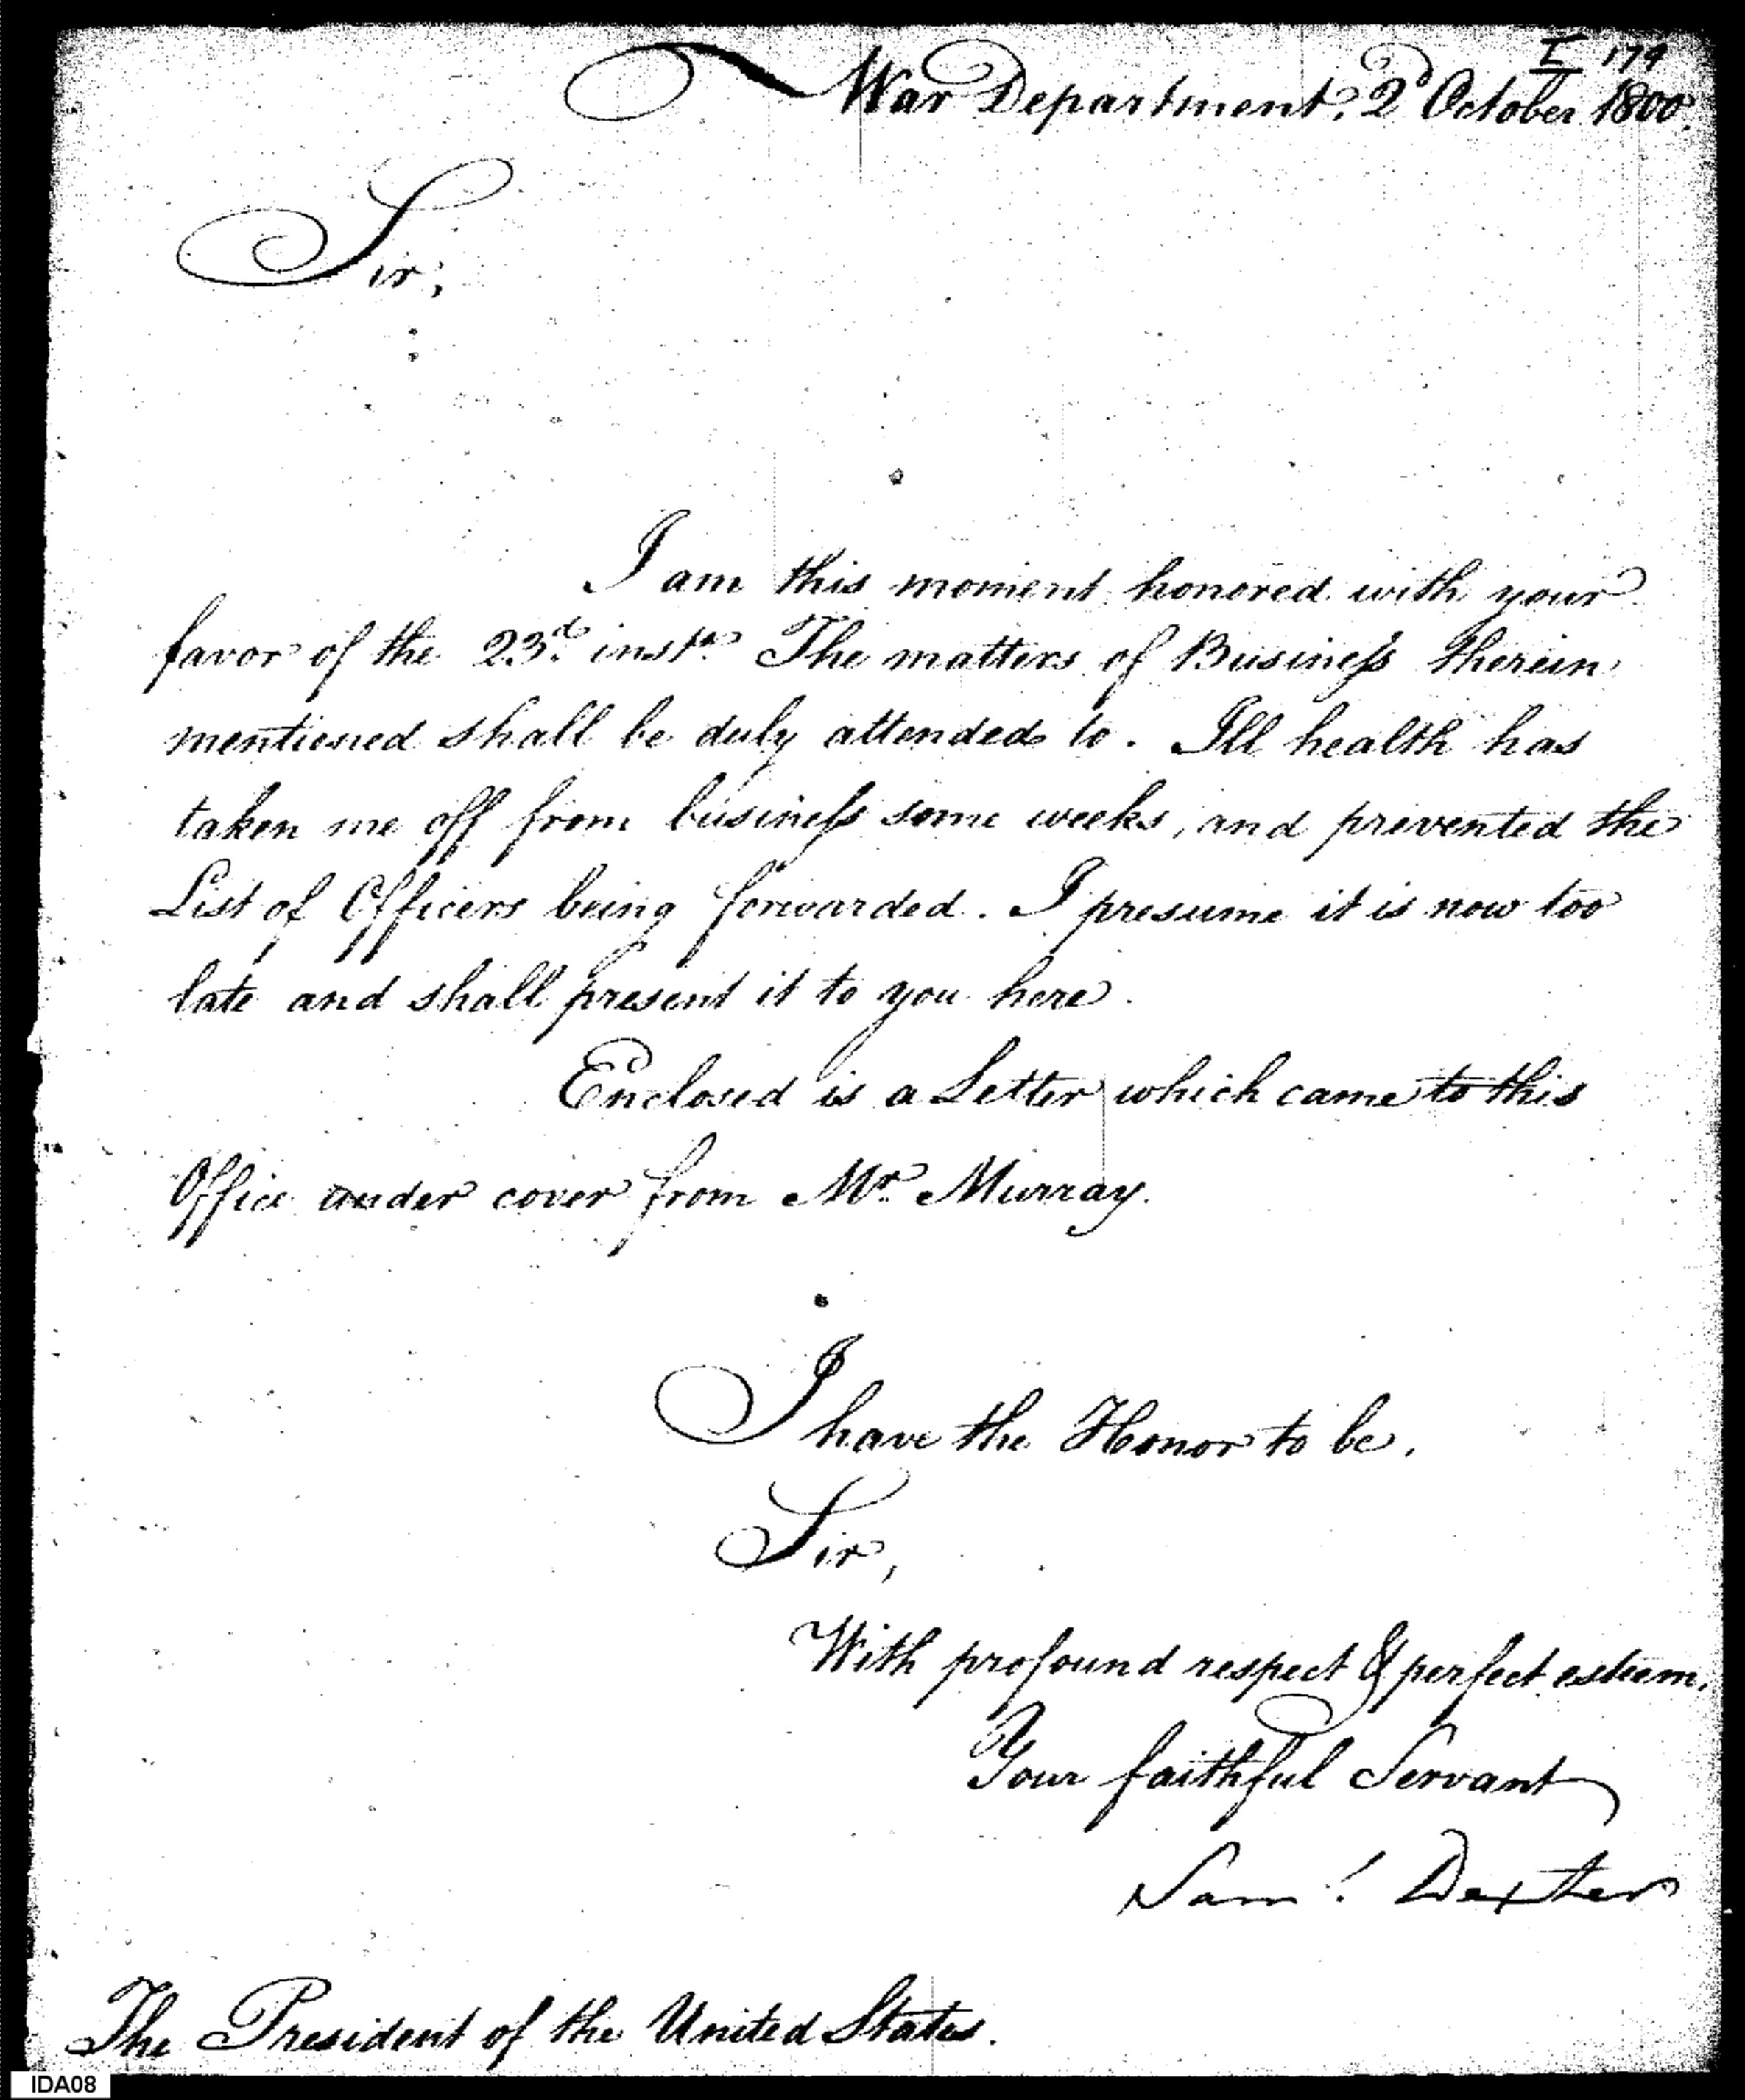 I 179
War Department, 2d October 1800.
Sir;
I am this moment honored with your
favor of the 23d. instt. The matters of Business therein
mentioned shall be duly attended to. Ill health has
taken me off from business some weeks, and prevented the
List of Officers being forwarded. I presume it is now too
late and shall present it to you here.
Enclosed is a Letter which came to this
Office under cover from Mr. Murray.
I have the Honor to be,
Sir,
With profound respect & perfect esteem,
Your faithful Servant
Saml. Dexter
The President of the United States.
IDA08